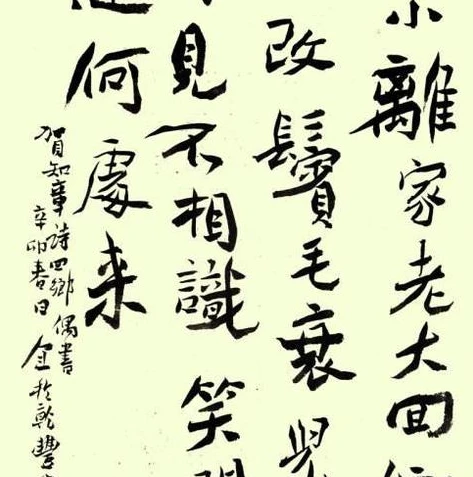 小離家老大回
改鬢毛衰
見不相識笑
何處来
賀知章詩回鄉偶書
辛卯春日